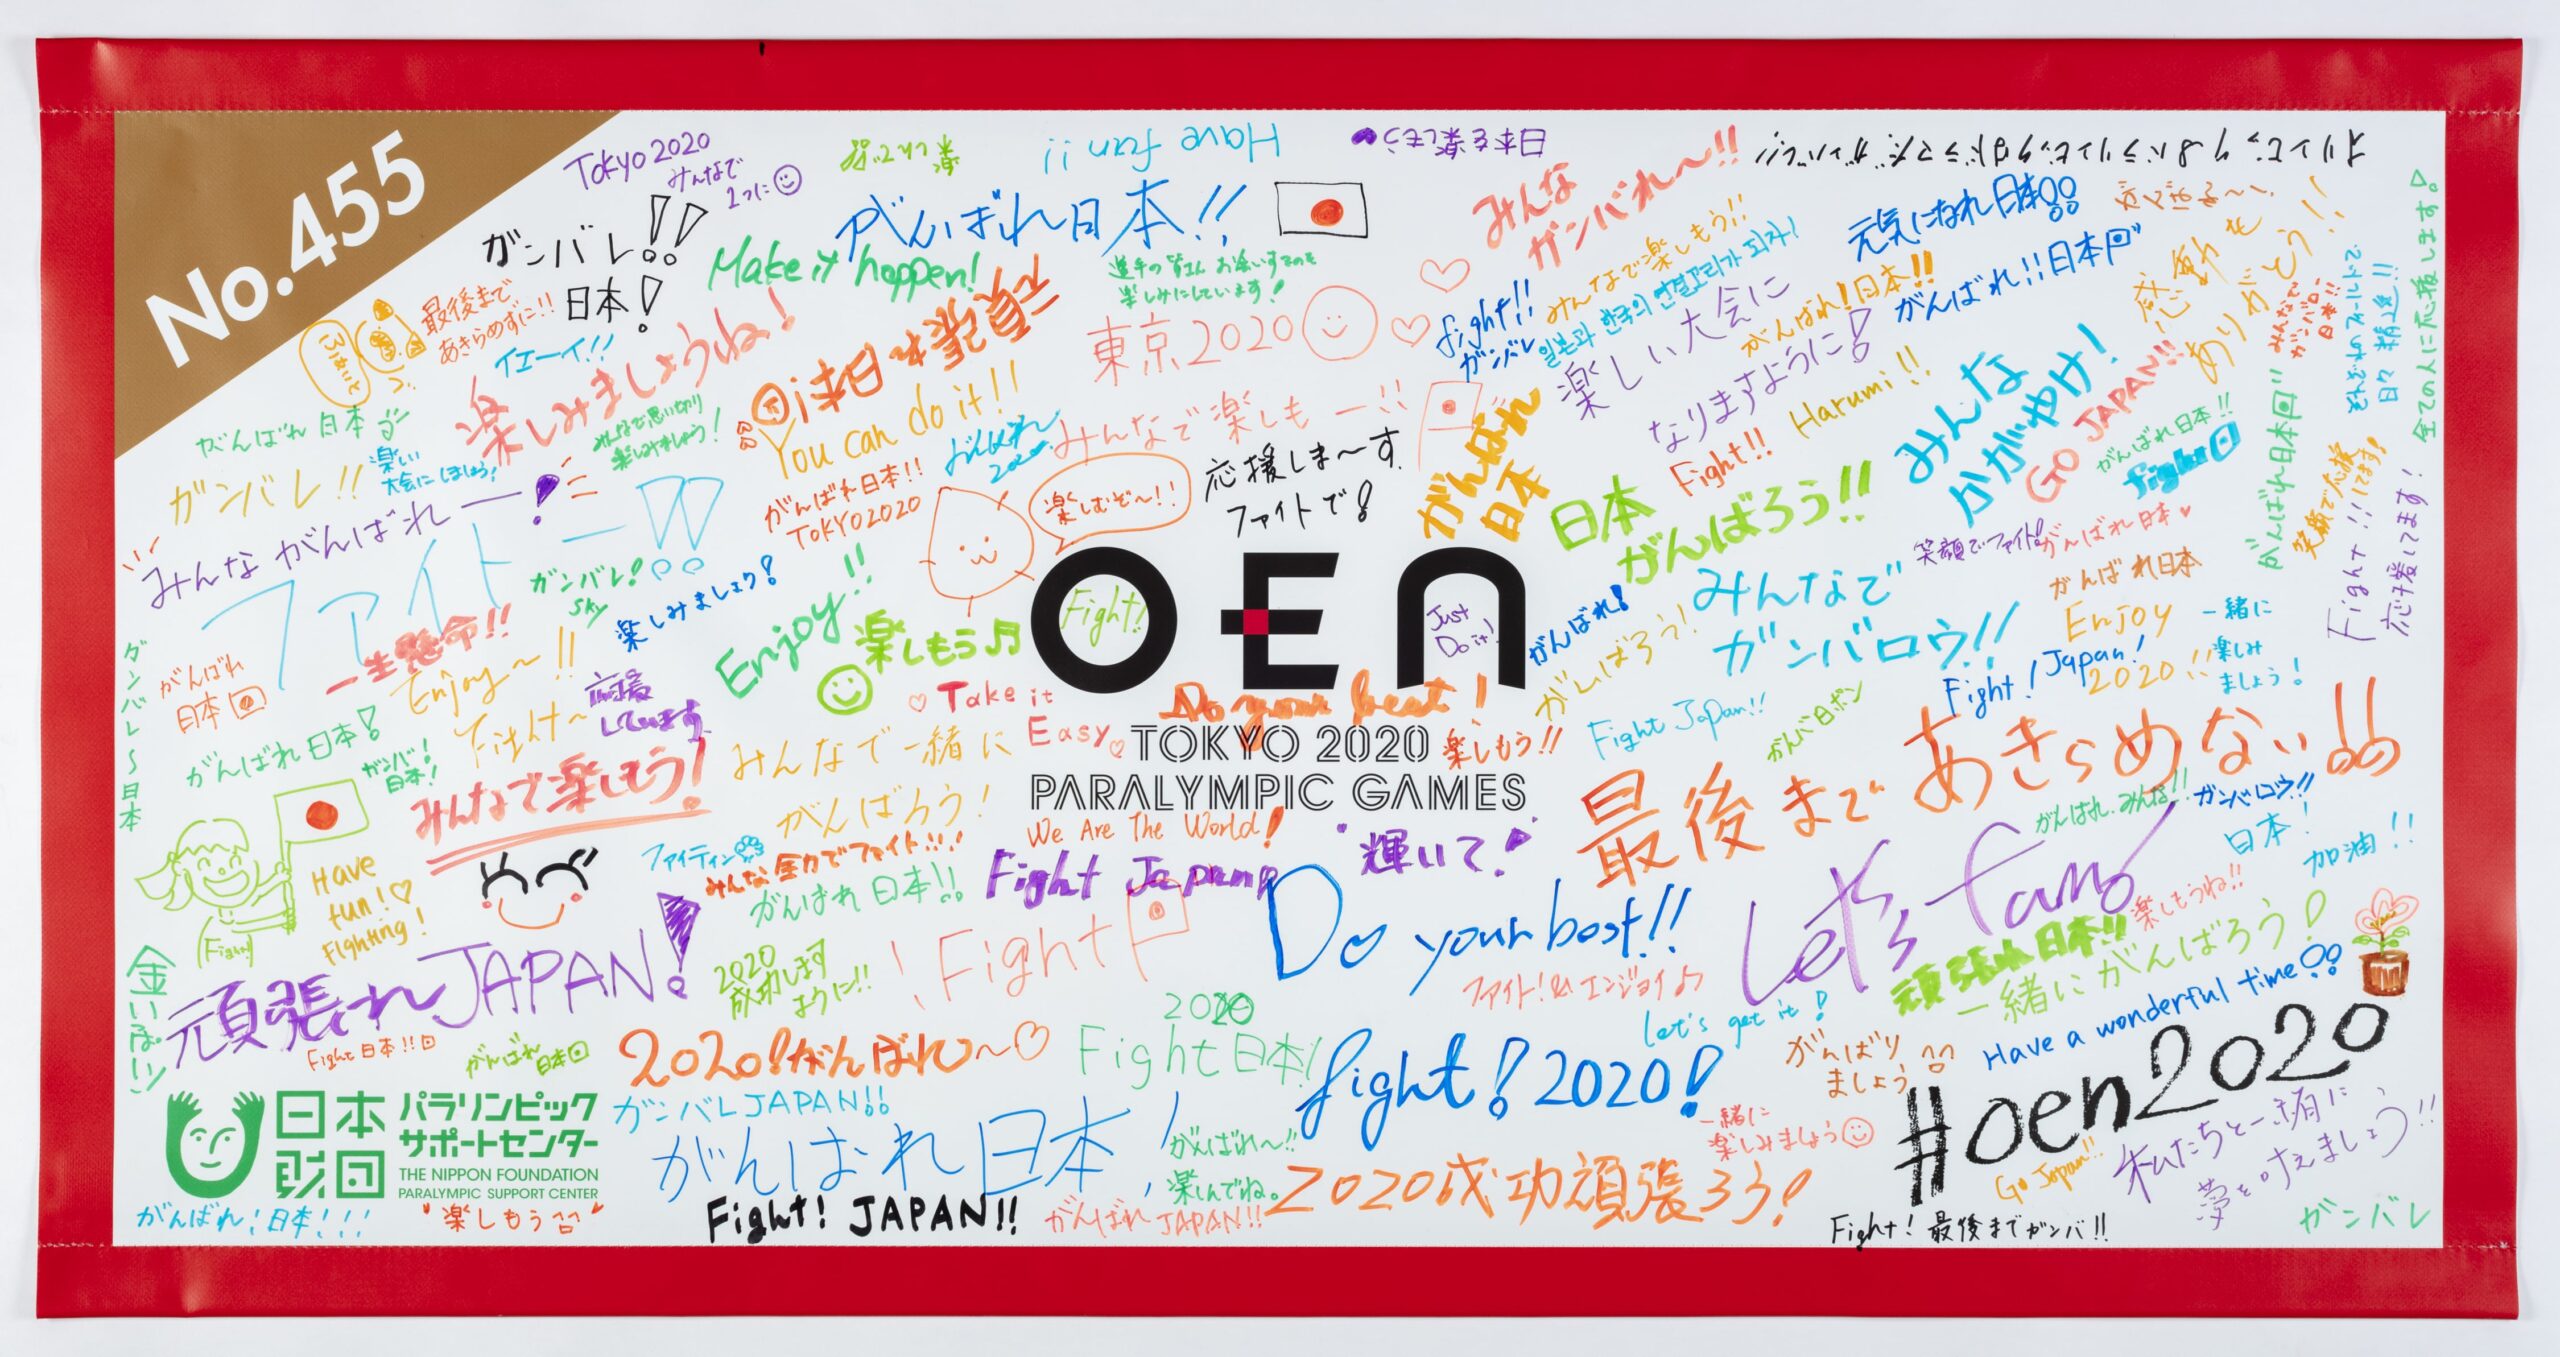 No.455
Tokyo2020
みんなで
1つに
Have fun!!
日本を楽しもう
がんばれ日本!!
みんな
ガンバれ〜!!
元気になれ日本!!
ガンバレ!!
日本!
Make it happen!
選手の皆さん お会いするのを
楽しみにしています!
みんなで楽しもう!!
がんばれ!!日本
感動を
ありがとう!!
全ての人に応援します。
最後まで
あきらめずに!!
イエーイ!!
楽しみましょうね!
頑張れ日本!
東京2020
fight!!
ガンバレ
일본과 한국의 연결고리가 되자!
がんばれ!日本!!
楽しい大会に
なりますように!
Harumi!!
みんな
かがやけ!
GO
JAPAN!!
みんなで
ガンバロー
日本!!
がんばれ日本
ガンバレ!!
楽しい
大会にしましょう!
みんなで思い切り
楽しみましょう!
You can do it!!
がんばれ
2020
みんなで楽しもー!!
楽しむぞ〜!!
応援しま〜す
ファイトで!
がんばれ
日本
Fight!!
日本
がんばろう!!
がんばれ日本!!
Fight
がんばれ日本
笑顔で応援
してます!
Fight!!!
応援してます!
みんな がんばれー!
ファイトー!!
がんばれ日本!!
TOKYO2020
ガンバレ!
sky
楽しみましょう!
Enjoy!!
楽しもう♬
OEN
Fight!
Just
Do it!
がんばれ!
がんばろう!
みんなで
ガンバロウ!!
笑顔でファイト!
がんばれ日本
がんばれ日本
Enjoy
2020!!
一緒に
楽しみ
ましょう!
ガンバレ〜日本
がんばれ
日本
一生懸命!!
Enjoy〜!!
Fight〜
応援
しています
Take it
Easy
Do your best!
TOKYO 2020
PARALYMPIC GAMES
楽しもう!!
Fight Japan!!
がんバロポン
Fight! Japan!
がんばれ日本!
ガンバ!
日本!
みんなで楽しもう!
みんなで一緒に
がんばろう!
We Are The World!
最後まであきらめない!!
がんばれ.みんな!!
ガンバロウ!!
日本!
加油!!
Have
fun!
Fighting!
Fight
ファイティン
みんな全力でファイト!!
がんばれ日本!!
Fight Japan
輝いて!
Let's fun
楽しもうね!!
頑張れJAPAN!
2020
成功します
ように!!
Fight
Do your best!!
ファイト!&エンジョイ♪
頑張れ日本!!
一緒にがんばろう!
Have a wonderful time!!
金いぱい
Fight日本!!
がんばれ
日本
2020!がんばれ〜
2020
Fight日本!
fight!2020!
Let's get it!
がんばり
ましょう
#oen2020
日本
財団
パラリンピック
サポートセンター
THE NIPPON FOUNDATION
PARALYMPIC SUPPORT CENTER
ガンバレJAPAN!!
がんばれ日本!
がんばれ〜!!
楽しんでね。
一緒に
楽しみましょう
Go Japan!!
私たちと一緒に
夢を叶えましょう!!
がんばれ!日本!!!
楽しもう
Fight! JAPAN!!
がんばれJAPAN!!
2020成功頑張ろう!
Fight! 最後までガンバ!!
ガンバレ